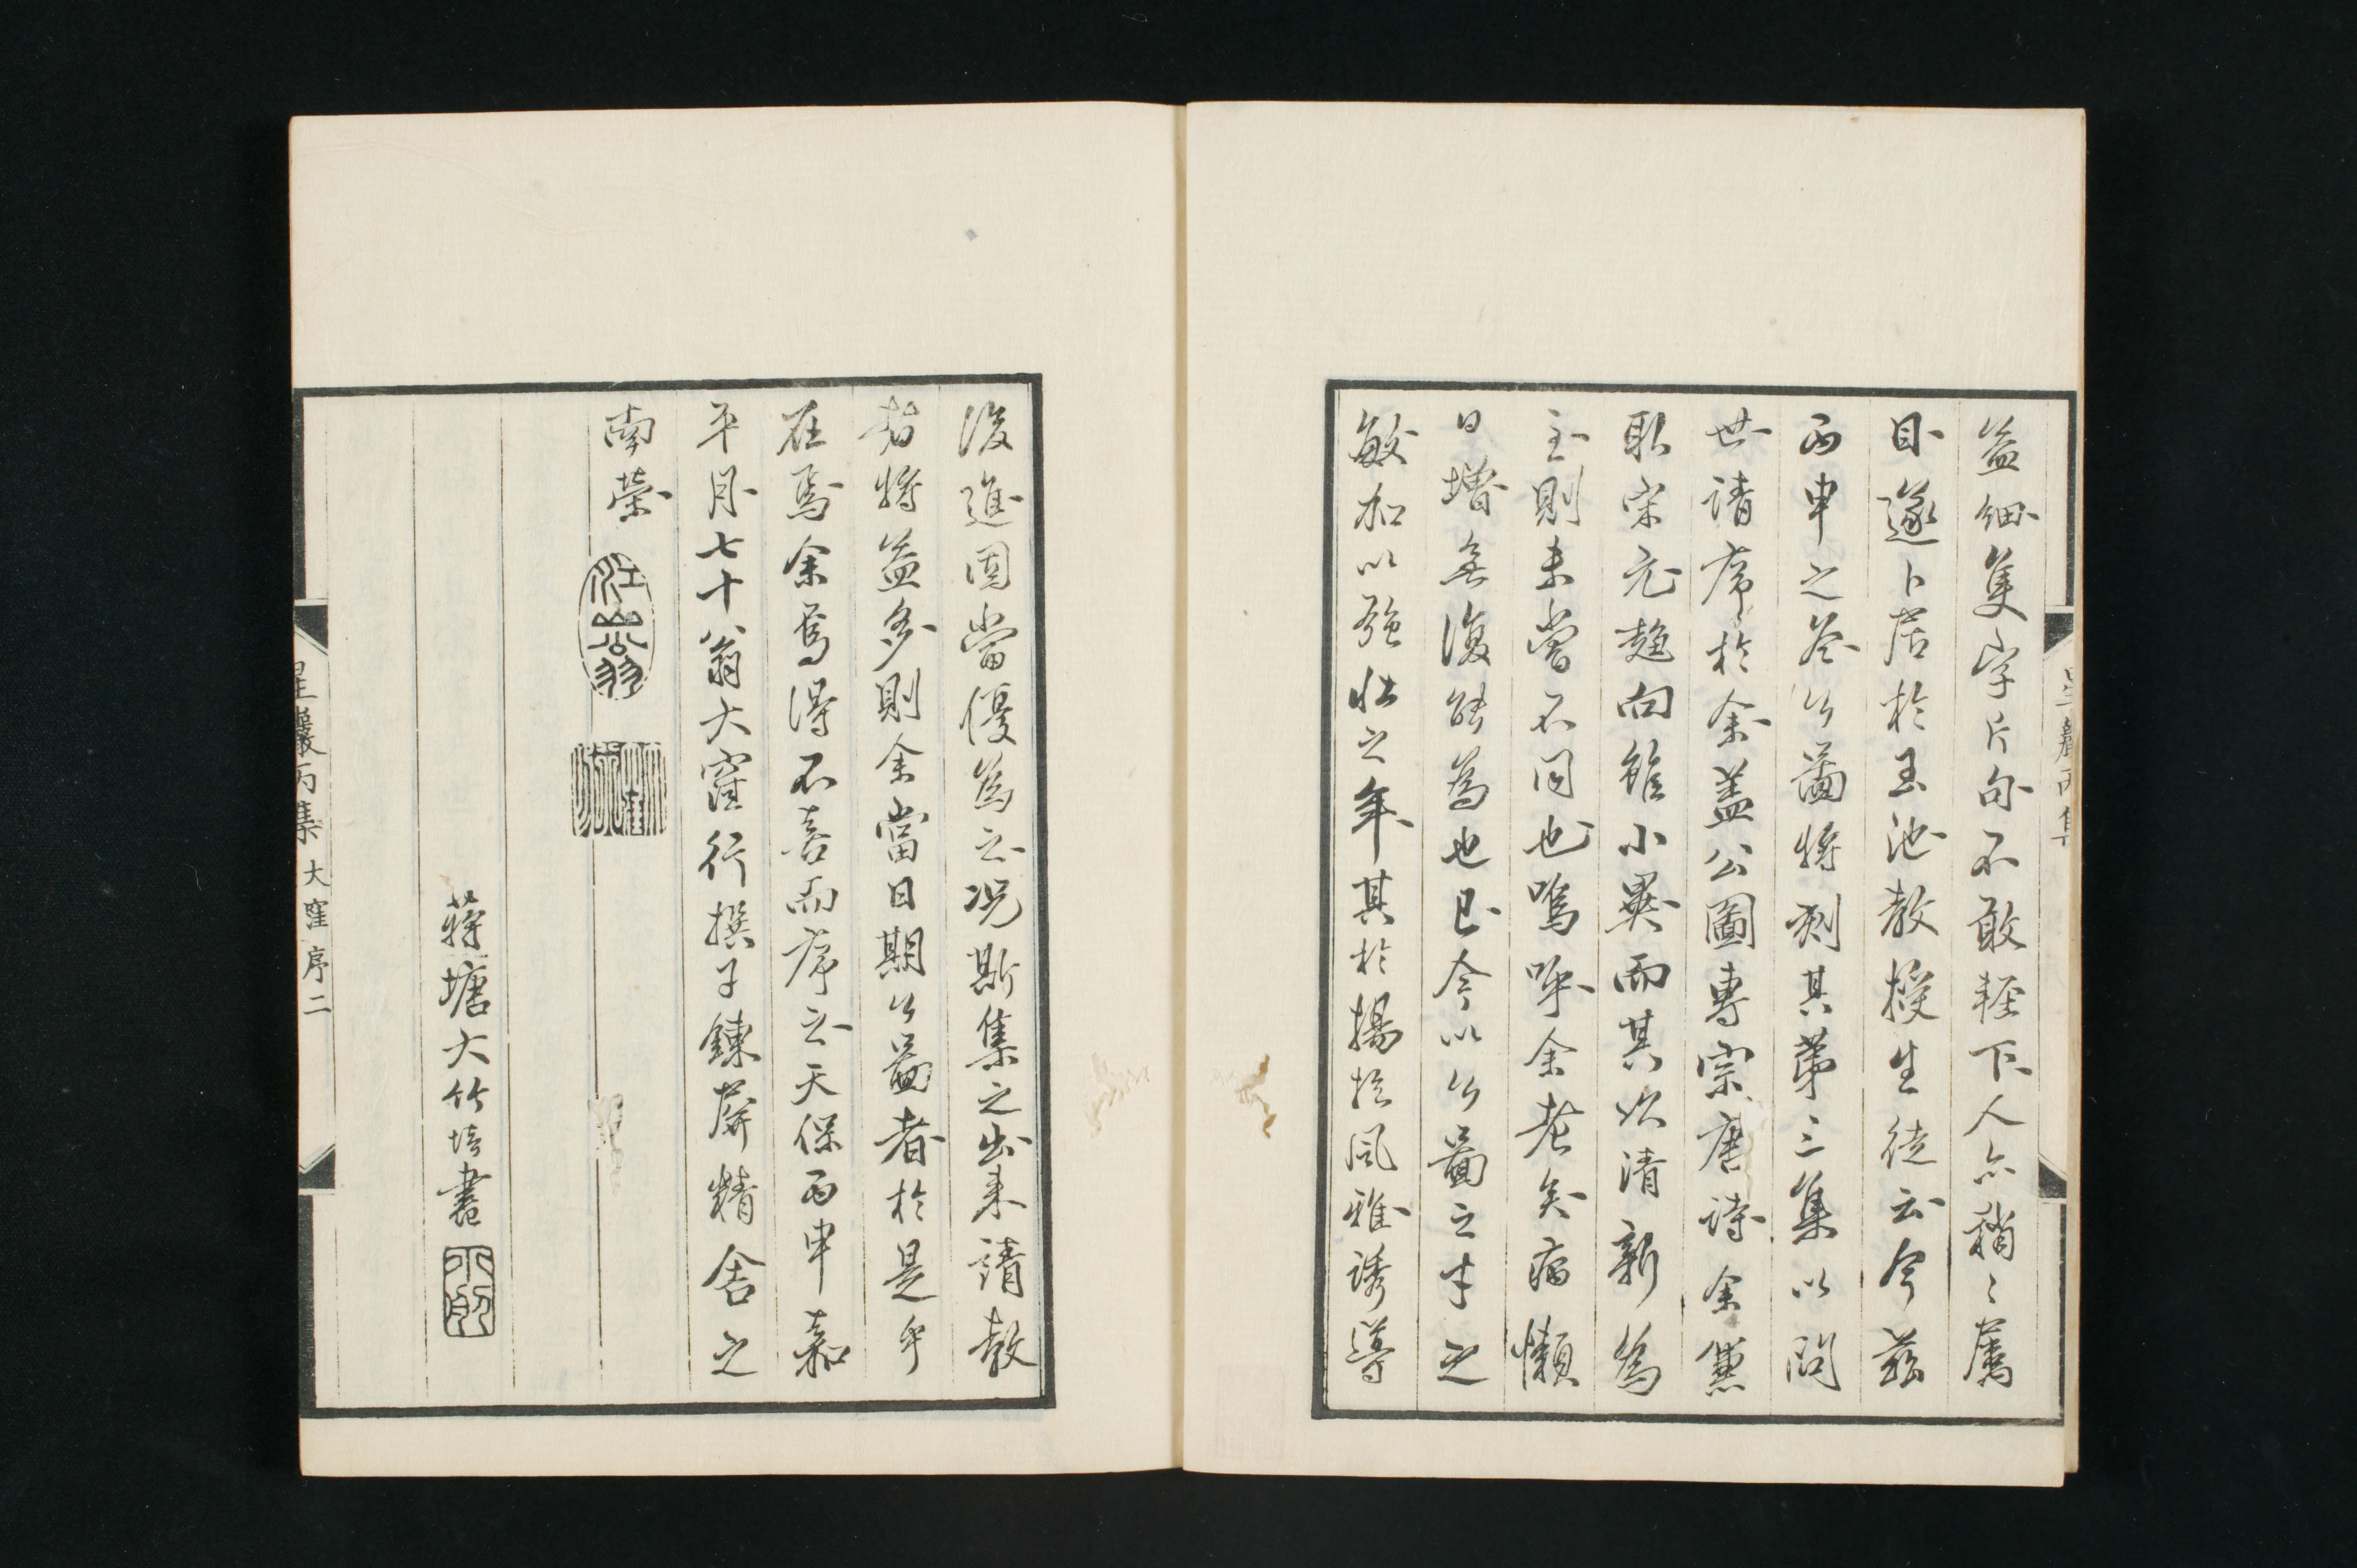 益細隻字片句不敢輕下人亦稍〻屬
目遂卜居於玉池教授生徒云今茲
丙申之冬公圖將刻其第三集以問
世請序於余蓋公圖專宗唐詩余兼
取宋元趨向雖小異而其以清新為
主則未嘗不同也嗚呼余老矣病懶
日增無復能為也已今以公圖之才之
敏加以强壯之年其於揚扢風雅誘導
後進固當優為之况斯集之出來請教
者將益多則余當日期公圖者於是乎
在焉余焉得不喜而序之天保丙申嘉
平月七十翁大窪行撰于鍊葊精舍之
南榮
江山翁
蒋塘大竹培書
星巖丙集 大窪序 二
星巖丙集